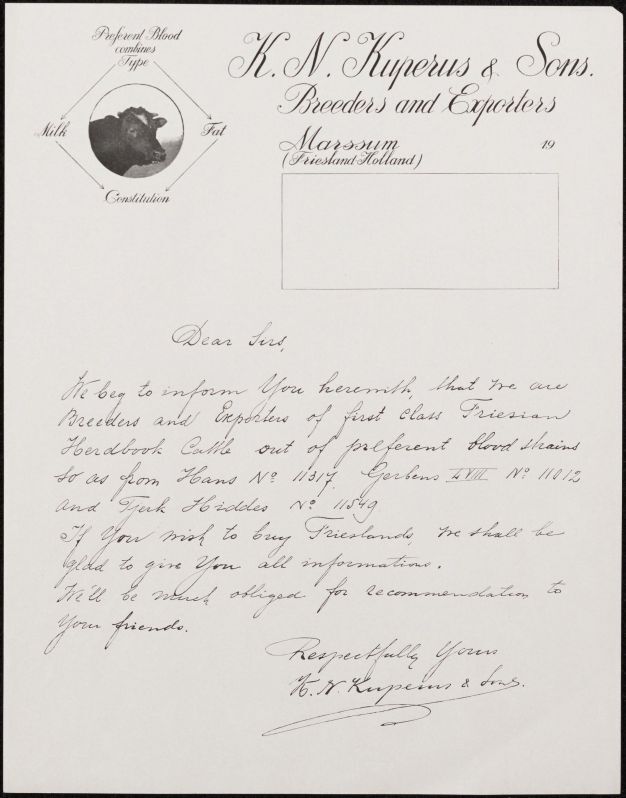 Preferent Blood
combines
Type
Milk
Fat
Constitution
K. N. Kuperus & Sons.
Breeders and Exporters
Marssum
19
(Friesland-Holland)
Dear Sirs,
We beg to inform You herewith, that we are
Breeders and Exporters of first class Friesian
Herdbook Cattle out of preferent blood strains
so as from Hans Nº 11317, Gerbens LXIII Nº 11012
and Tjerk Hiddes Nº 11549
If You wish to buy Frieslands, we shall be
glad to give You all informations.
We'll be much obliged for recommendation to
Your friends.
Respectfully Yours
K. N. Kuperus & Sons.